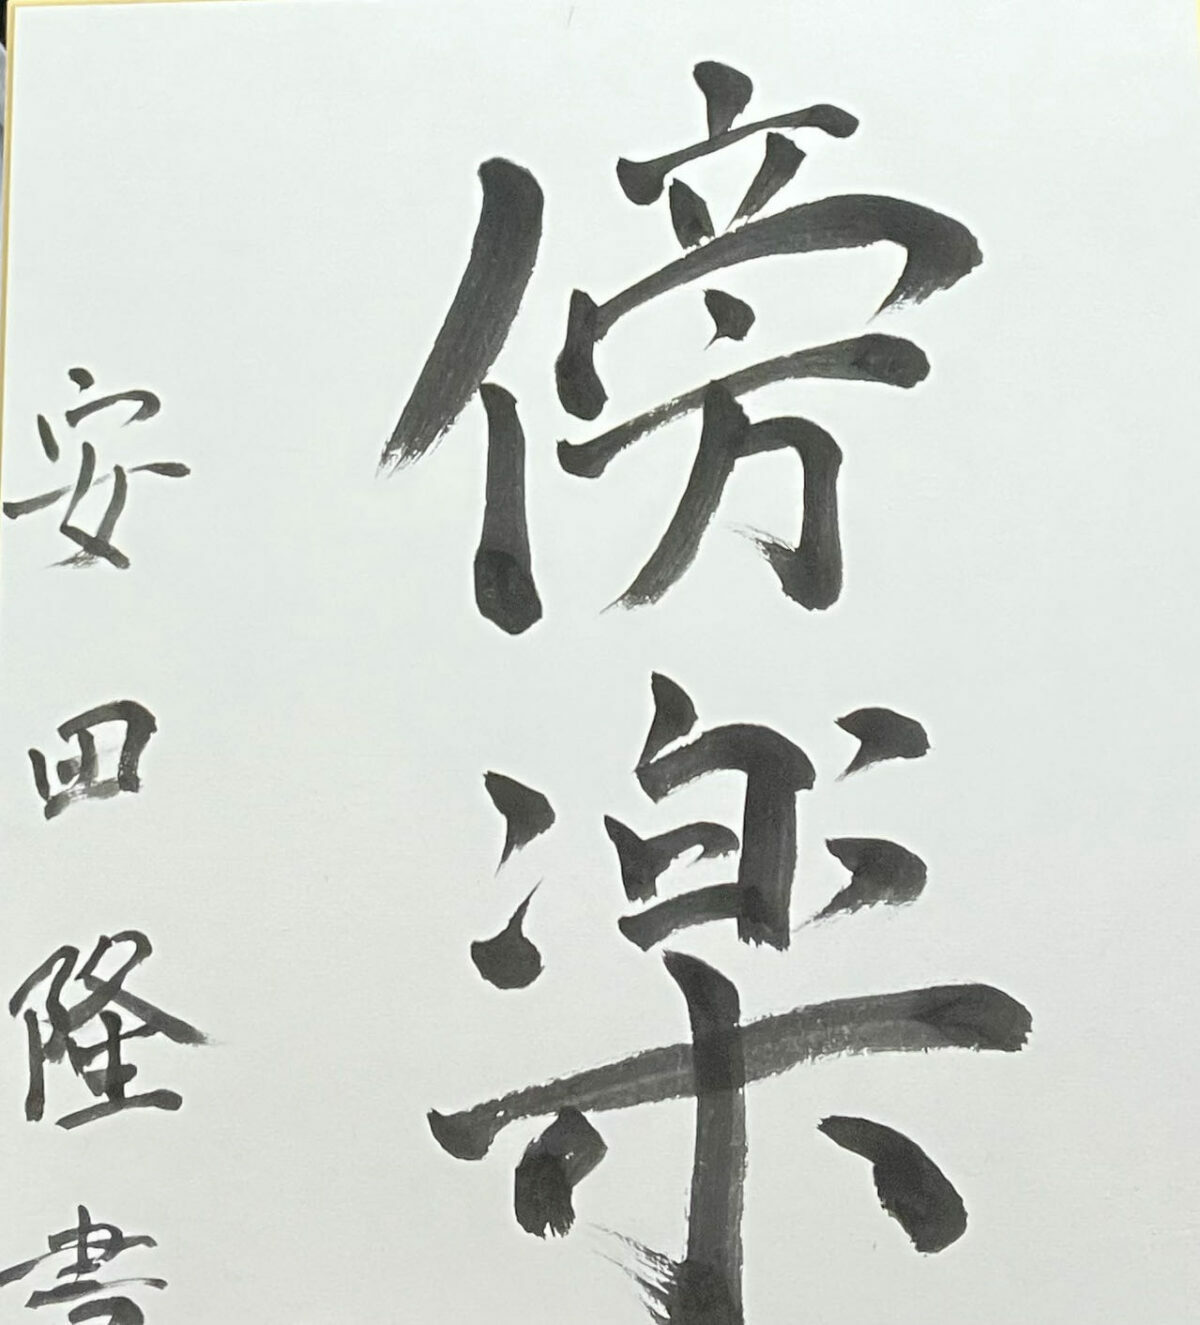 傍楽
安田隆書